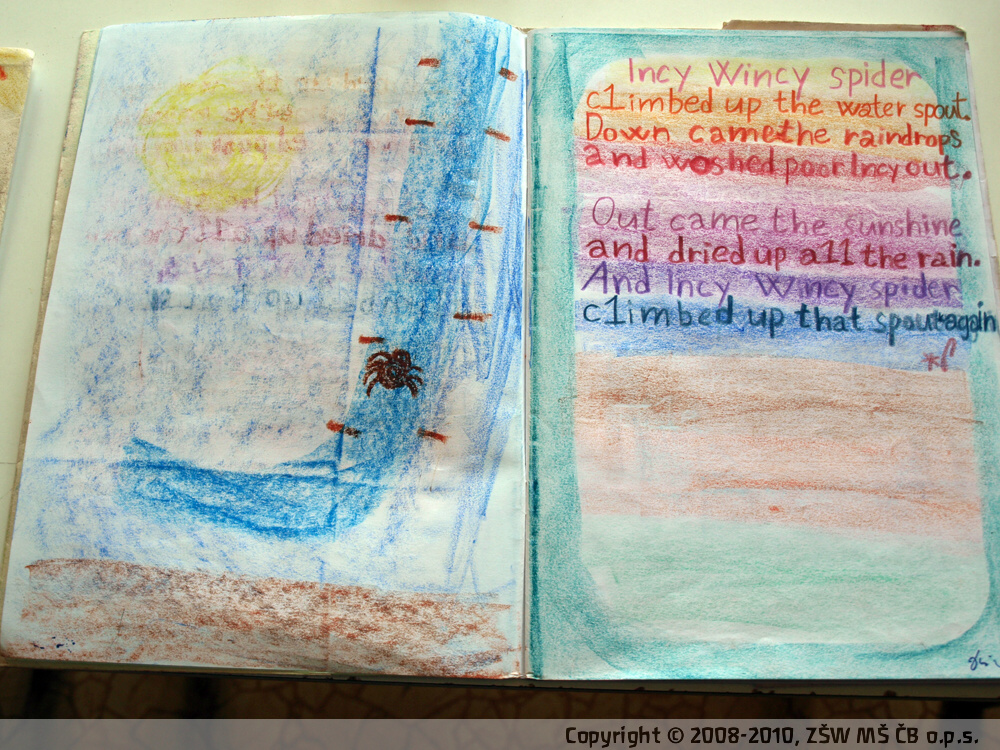 Incy Wincy spider
c1imbed up the water spout.
Down came the raindrops
and woshed poor Incy out.
Out came the sunshine
and dried up a11 the rain.
And Incy Wincy spider
c1imbed up that spout again
Copyright © 2008-2010, ZŠW MŠ ČB o.p.s.